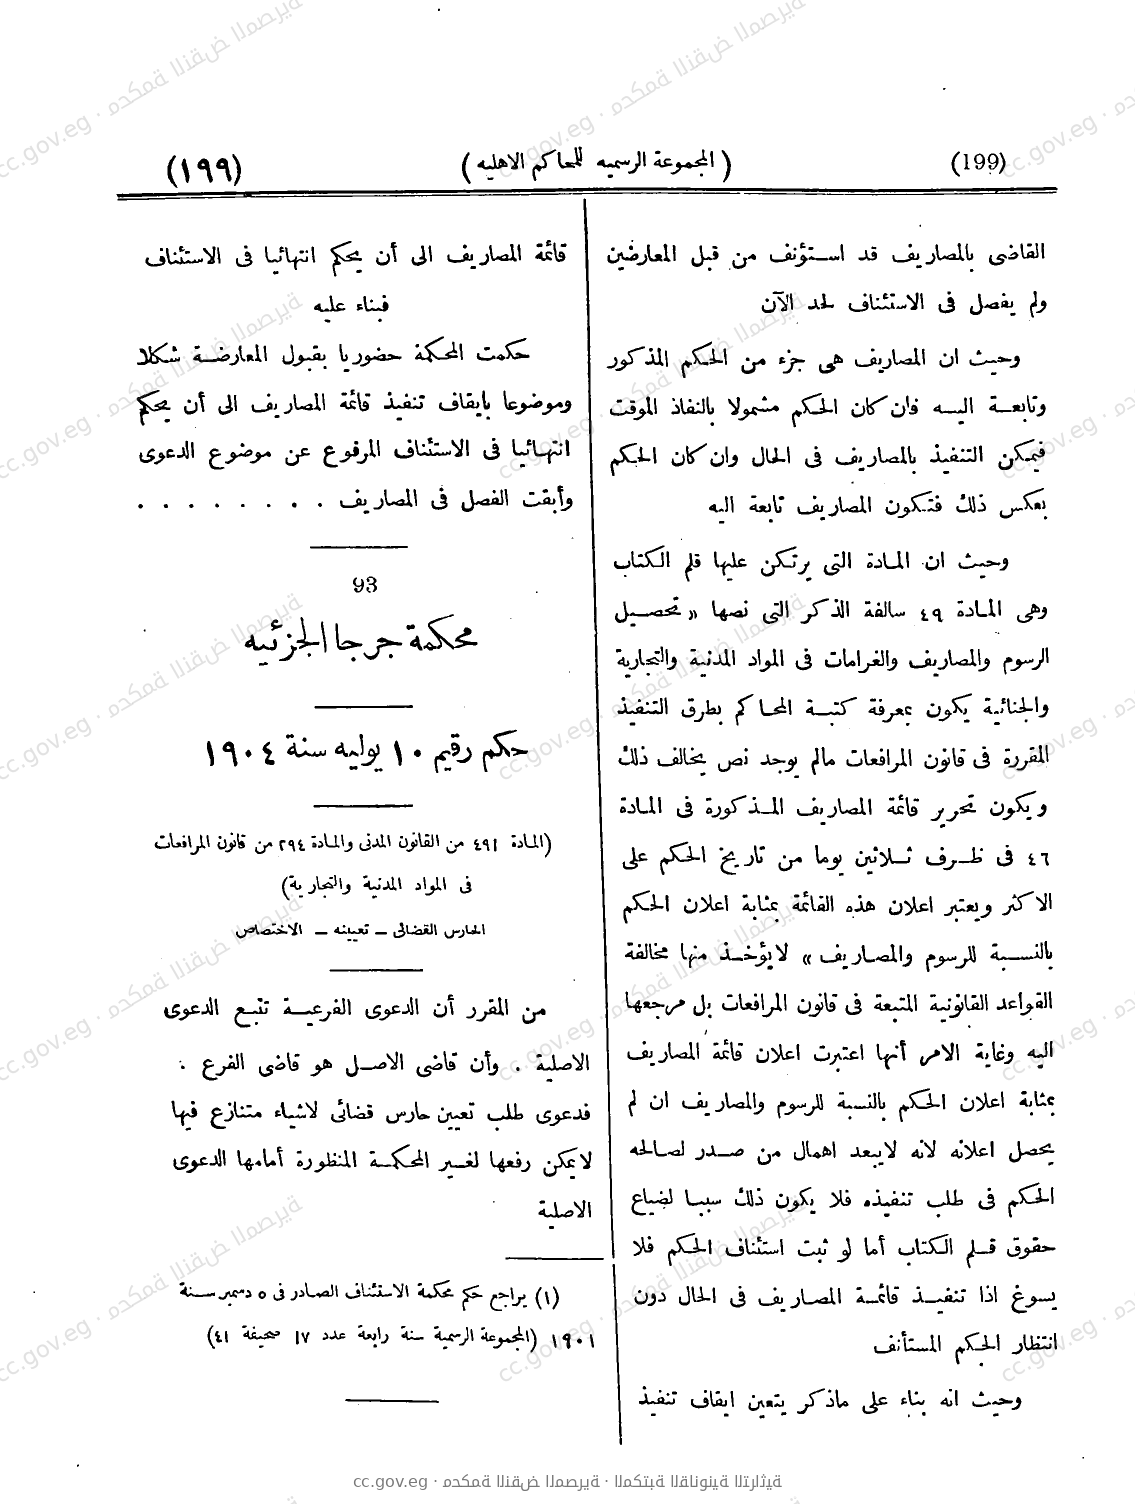 (199) (المجموعة الرسميه للمحاكم الاهليه) (١٩٩)
القاضى بالمصاريف قد استؤنف من قبل المعارضين
ولم يفصل فى الاستئناف لحد الآن
وحيث ان المصاريف هى جزء من الحكم المذكور
وتابعة اليه فان كان الحكم مشمولا بالنفاذ الموقت
فيمكن التنفيذ بالمصاريف فى الحال وان كان الحكم
بعكس ذلك فتكون المصاريف تابعة اليه
وحيث ان المادة التى يرتكن عليها قلم الكتاب
وهى المادة ٤٩ سالفة الذكر التى نصها « تحصيل
الرسوم والمصاريف والغرامات فى المواد المدنية والتجارية
والجنائية يكون بمعرفة كتبة المحاكم بطرق التنفيذ
المقررة فى قانون المرافعات مالم يوجد نص يخالف ذلك
ويكون تحرير قائمة المصاريف المذكورة فى المادة
٤٦ فى ظرف ثلاثين يوما من تاريخ الحكم على
الاكثر ويعتبر اعلان هذه القائمة بمثابة اعلان الحكم
بالنسبة للرسوم والمصاريف » لايؤخذ منها مخالفة
القواعد القانونية المتبعة فى قانون المرافعات بل مرجعها
اليه وغاية الامر أنها اعتبرت اعلان قائمة المصاريف
بمثابة اعلان الحكم بالنسبة للرسوم والمصاريف ان لم
يحصل اعلانه لانه لايبعد اهمال من صدر لصالحه
الحكم فى طلب تنفيذه فلا يكون ذلك سببا لضياع
حقوق قلم الكتاب أما لو ثبت استئناف الحكم فلا
يسوغ اذا تنفيذ قائمة المصاريف فى الحال دون
انتظار الحكم المستأنف
وحيث انه بناء على ماذكر يتعين ايقاف تنفيذ
قائمة المصاريف الى أن يحكم انتهائيا فى الاستئناف
فبناء عليه
حكمت المحكمة حضوريا بقبول المعارضة شكلا
وموضوعا بايقاف تنفيذ قائمة المصاريف الى أن يحكم
انتهائيا فى الاستئناف المرفوع عن موضوع الدعوى
وأبقت الفصل فى المصاريف . . . . . . . .
93
محكمة جرجا الجزئيه
حكم رقيم ١٠ يوليه سنة ١٩٠٤
(المادة ٤٩١ من القانون المدنى والمادة ٢٩٤ من قانون المرافعات
فى المواد المدنية والتجارية)
الحارس القضائى – تعيينه – الاختصاص
من المقرر أن الدعوى الفرعية تتبع الدعوى
الاصلية . وأن قاضى الاصل هو قاضى الفرع .
فدعوى طلب تعيين حارس قضائى لاشياء متنازع فيها
لايمكن رفعها لغير المحكمة المنظورة أمامها الدعوى
الاصلية
(١) يراجع حكم محكمة الاستئناف الصادر فى ٥ دسمبر سنة
١٩٠١ (المجموعة الرسمية سنة رابعة عدد ١٧ صحيفة ٤١)
cc.gov.eg · محكمة النقض المصرية · المكتبة القانونية التراثية